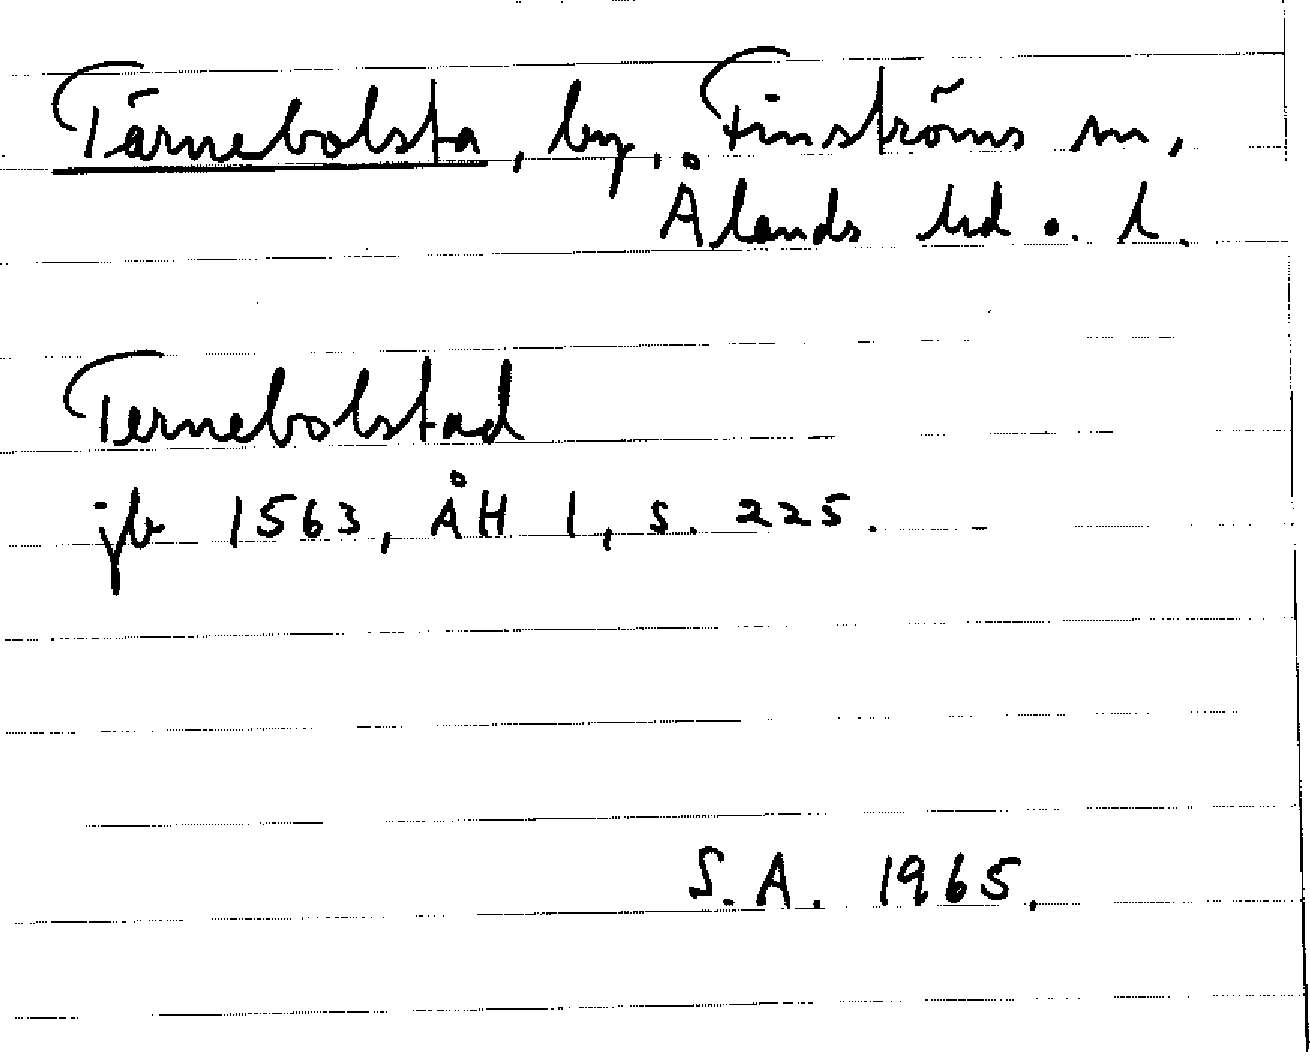 Tärnebolsta, by, Finströms sn,
Ålands hd o. l.
Ternebolstad
jb 1563, ÅH 1, s. 225.
S.A. 1965.